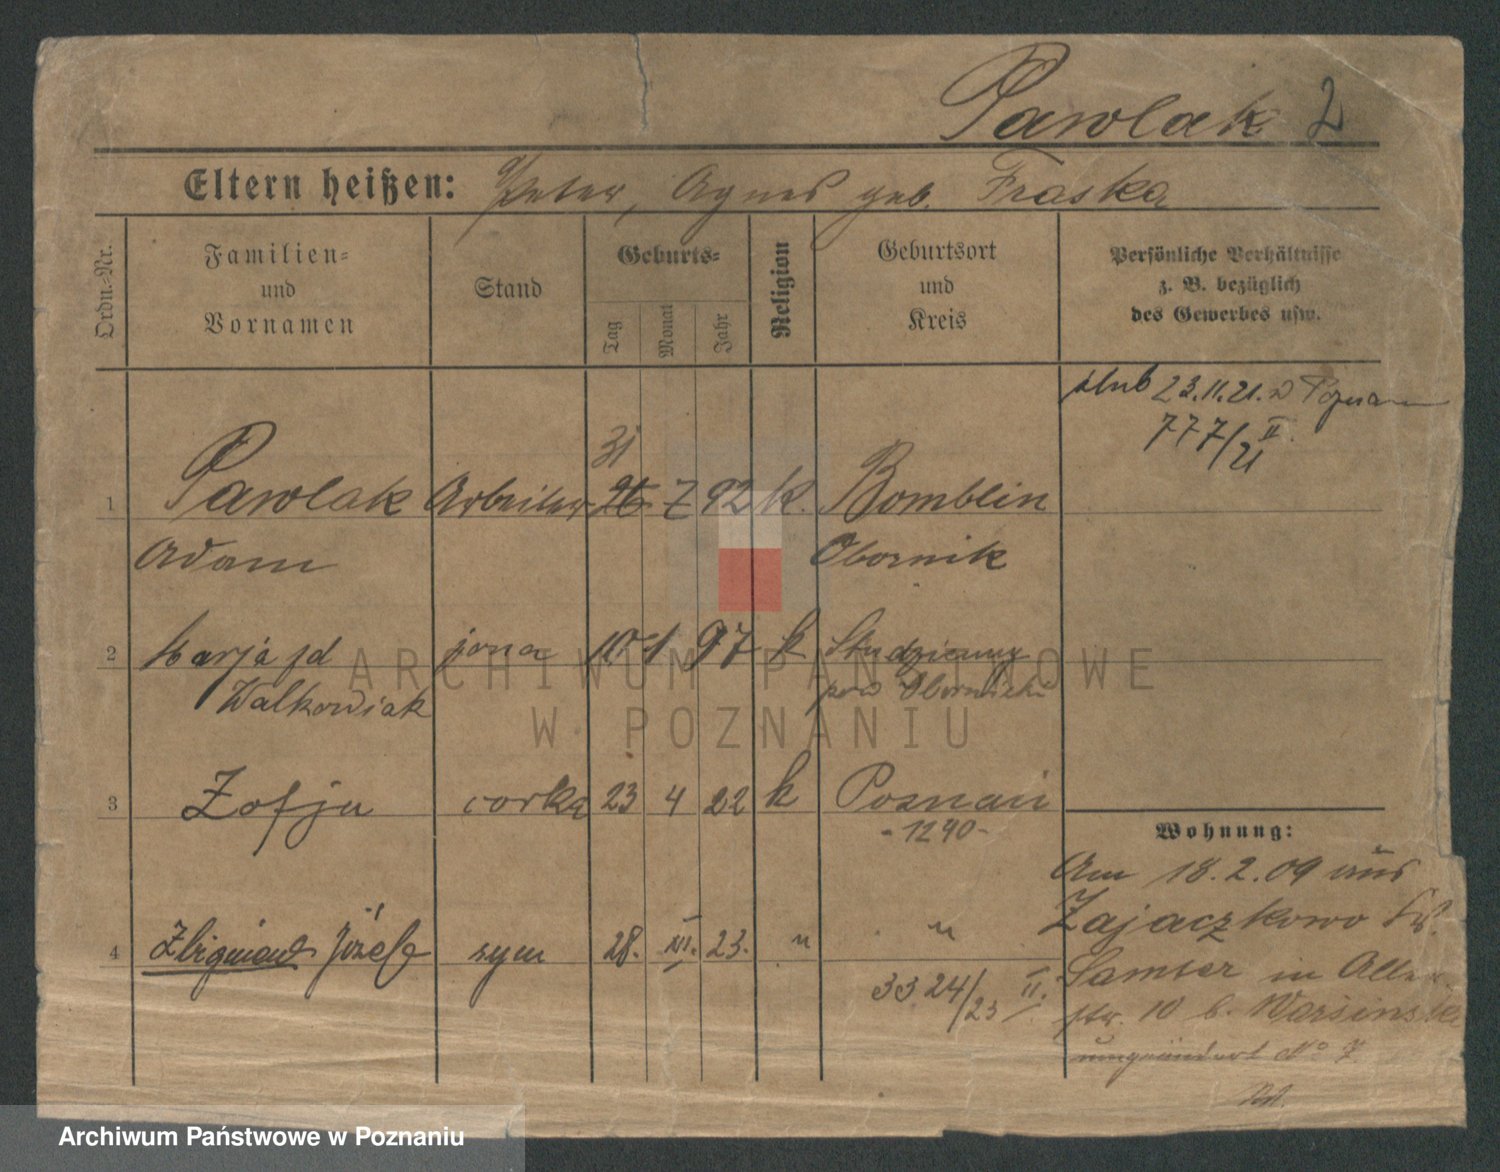 Pawlak 2
Eltern heißen: Peter, Agnes geb. Fraska
Ordn.-Nr.
Familien-
und
Vornamen
Stand
Geburts-
Tag
Monat
Jahr
Religion
Geburtsort
und
Kreis
Persönliche Verhältnisse
z. B. bezüglich
des Gewerbes usw.
ślub 23.11.21. w Poznan
777/21 II.
31
1 Pawlak Arbeiter 26 7 92 k. Bomblin
Adam Obornik
2 Marja zd żona 10 1 97 k
Walkowiak pow Obornicki
3 Zofja corka 23 4 22 k Poznań
-1290-
4 Zbigniew Józef syn 28. XI. 23. " "
3324/23 II.
Wohnung:
Am 18.2.09 aus
Zajaczkowo Kr.
Samter in Allen
str. 10 b.
umgeändert No 7.
ARCHIWUM PAŃSTWOWE
W POZNANIU
Archiwum Państwowe w Poznaniu